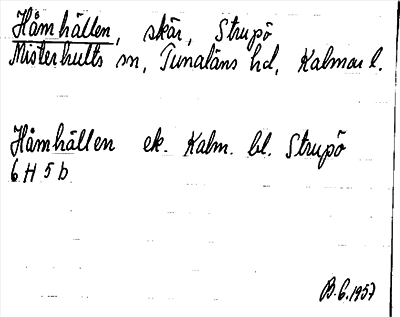 Håmhällen, skär, Strupö
Misterhults sn, Tunaläns hd, Kalmar l.
Håmhällen ek. Kalm. bl. Strupö
6 H 5 b
B. G. 1957